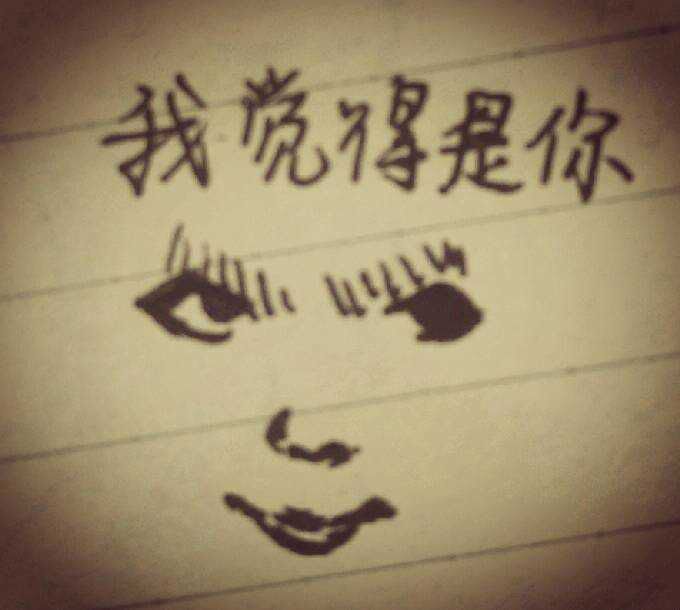 我觉得是你